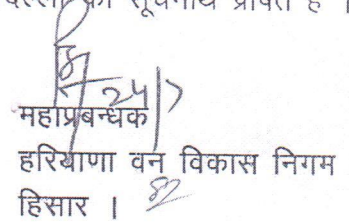 की सूचनार्थ प्रेषित है ।
24/7
महाप्रबन्धक
हरियाणा वन विकास निगम
हिसार ।